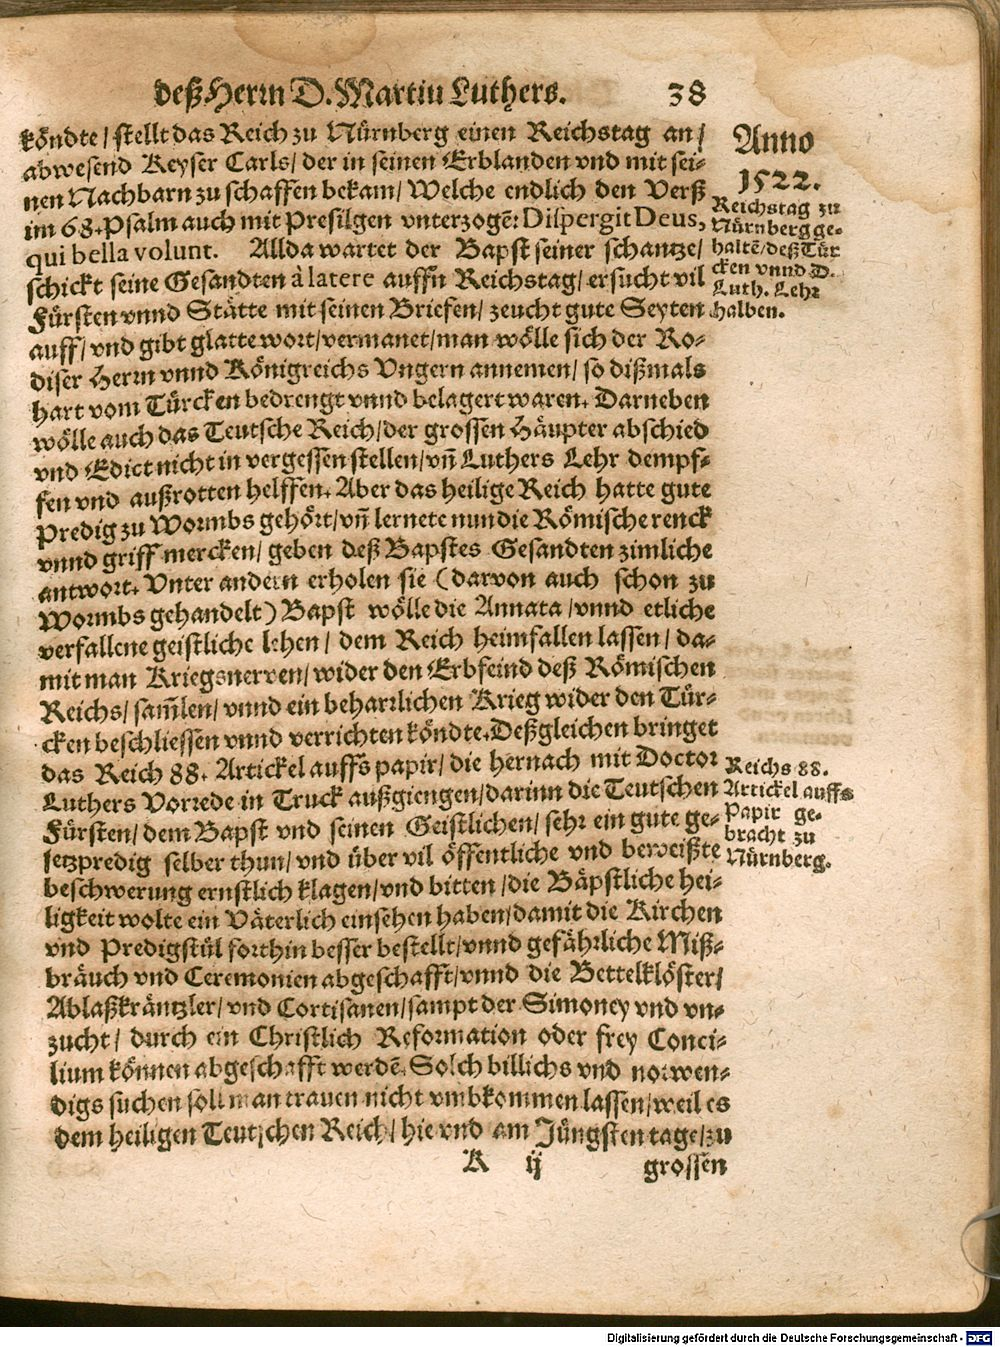 deß Herrn D. Martin Luthers. 38
köndte / stellt das Reich zu Nürnberg einen Reichstag an /
abwesend Keyser Carls / der in seinen Erblanden vnd mit sei-
nen Nachbarn zu schaffen bekam / Welche endlich den Verß
im 68. Psalm auch mit Presilgen vnterzogē: Dispergit Deus,
qui bella volunt. Allda wartet der Bapst seiner schantze /
schickt seine Gesandten à latere auffn Reichstag / ersucht vil
Fürsten vnnd Stätte mit seinen Briefen / zeucht gute Seyten
auff / vnd gibt glatte wort / vermanet / man wölle sich der Ro-
diser Herrn vnnd Königreichs Vngern annemen / so dißmals
hart vom Türcken bedrengt vnnd belagert waren. Darneben
wölle auch das Teutsche Reich / der grossen Häupter abschied
vnd Edict nicht in vergessen stellen / vn̄ Luthers Lehr dempf-
fen vnd außrotten helffen. Aber das heilige Reich hatte gute
Predig zu Wormbs gehört / vn̄ lernete nun die Römische renck
vnnd griff mercken / geben deß Bapstes Gesandten zimliche
antwort. Vnter andern erholen sie (darvon auch schon zu
Wormbs gehandelt) Bapst wölle die Annata / vnnd etliche
verfallene geistliche lehen / dem Reich heimfallen lassen / da-
mit man Kriegsnerven / wider den Erbfeind deß Römischen
Reichs / sam̄len / vnnd ein beharrlichen Krieg wider den Tür-
cken beschliessen vnnd verrichten köndte. Deßgleichen bringet
das Reich 88. Artickel auffs papir / die hernach mit Doctor
Luthers Vorrede in Truck außgiengen / darinn die Teutschen
Fürsten / dem Bapst vnd seinen Geistlichen / sehr ein gute ge-
setzpredig selber thun / vnd über vil öffentliche vnd beweißte
beschwerung ernstlich klagen / vnd bitten / die Bäpstliche hei-
ligkeit wolte ein Väterlich einsehen haben / damit die Kirchen
vnd Predigstül forthin besser bestellt / vnnd gefährliche Miß-
bräuch vnd Ceremonien abgeschafft / vnnd die Bettelklöster /
Ablaßkräntzler / vnd Cortisanen / sampt der Simoney vnd vn-
zucht / durch ein Christlich Reformation oder frey Conci-
lium können abgeschafft werdē. Solch billichs vnd notwen-
digs suchen soll man trauen nicht vmbkommen lassen / weil es
dem heiligen Teutschen Reich / hie vnd am Jüngsten tage / zu
K ij grossen
Anno
1522.
Reichstag zu
Nürnberg ge-
haltē / deß Tür
cken vnnd D.
Luth. Lehr
halben.
Reichs 88.
Artickel auffs
Papir ge-
bracht zu
Nürnberg.
Digitalisierung gefördert durch die Deutsche Forschungsgemeinschaft - DFG